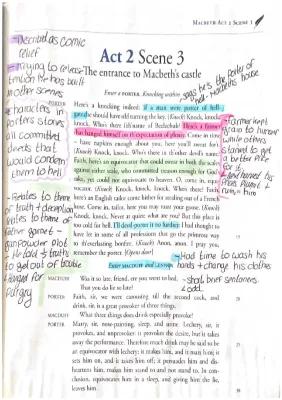 MACBETH ACT 2 SCENE 3
- Described as comic
relief
- trying to release
tension he has built
in other scenes
characters in
porters stories
all committed
deeds that
would condem
them to hell
- Relates to theme
of truth + deception
gunpowder plot
- He told ½ truths
to get out of trouble
Act 2 Scene 3
The entrance to Macbeth's castle
Enter a PORTER. Knocking within
says he's the porter of
hell - Macbeth's house
PORTER
Here's a knocking indeed: if a man were porter of hell-
gate, he should have old turning the key. (Knock) Knock,
knock, knock. Who's there i'th'name of Belzebub? Here's a farmer
that hanged himself on th'expectation of plenty. Come in time
- have napkins enough about you, here you'll sweat for't.
(Knock) Knock, knock. Who's there in th'other devil's name?
Faith, here's an equivocator that could swear in both the scales
against either scale, who committed treason enough for God's
sake, yet could not equivocate to heaven. O, come in, equi-
vocator. (Knock) Knock, knock, knock. Who's there? Faith,
here's an English tailor come hither for stealing out of a French
hose. Come in, tailor, here you may roast your goose. (Knock)
Knock, knock. Never at quiet: what are you? But this place is
too cold for hell. I'll devil-porter it no further: I had thought to
have let in some of all professions that go the primrose way
to th'everlasting bonfire. (Knock) Anon, anon. I pray you,
remember the porter. (Opens door)
Farmer kept
grain to humour
while others
starved to get
a better price
for it.
- Had time to wash his
hands + change his clothes
Enter MACDUFF and LENNOX
- short brief sentences
+ odd
MACDUFF
Was it so late, friend, ere you went to bed,
That you do lie so late?
PORTER
Faith, sir, we were carousing till the second cock, and
drink, sir, is a great provoker of three things.
MACDUFF
What three things does drink especially provoke?
PORTER
Marry, sir, nose-painting, sleep and urine. Lechery, sir, it
provokes, and unprovokes: it provokes the desire, but it takes
away the performance. Therefore much drink may be said to be
an equivocator with lechery: it makes him, and it mars him; it
sets him on, and it takes him off; it persuades him and dis-
heartens him, makes him stand to and not stand to. In con-
clusion, equivocates him in a sleep, and giving him the lie,
leaves him.